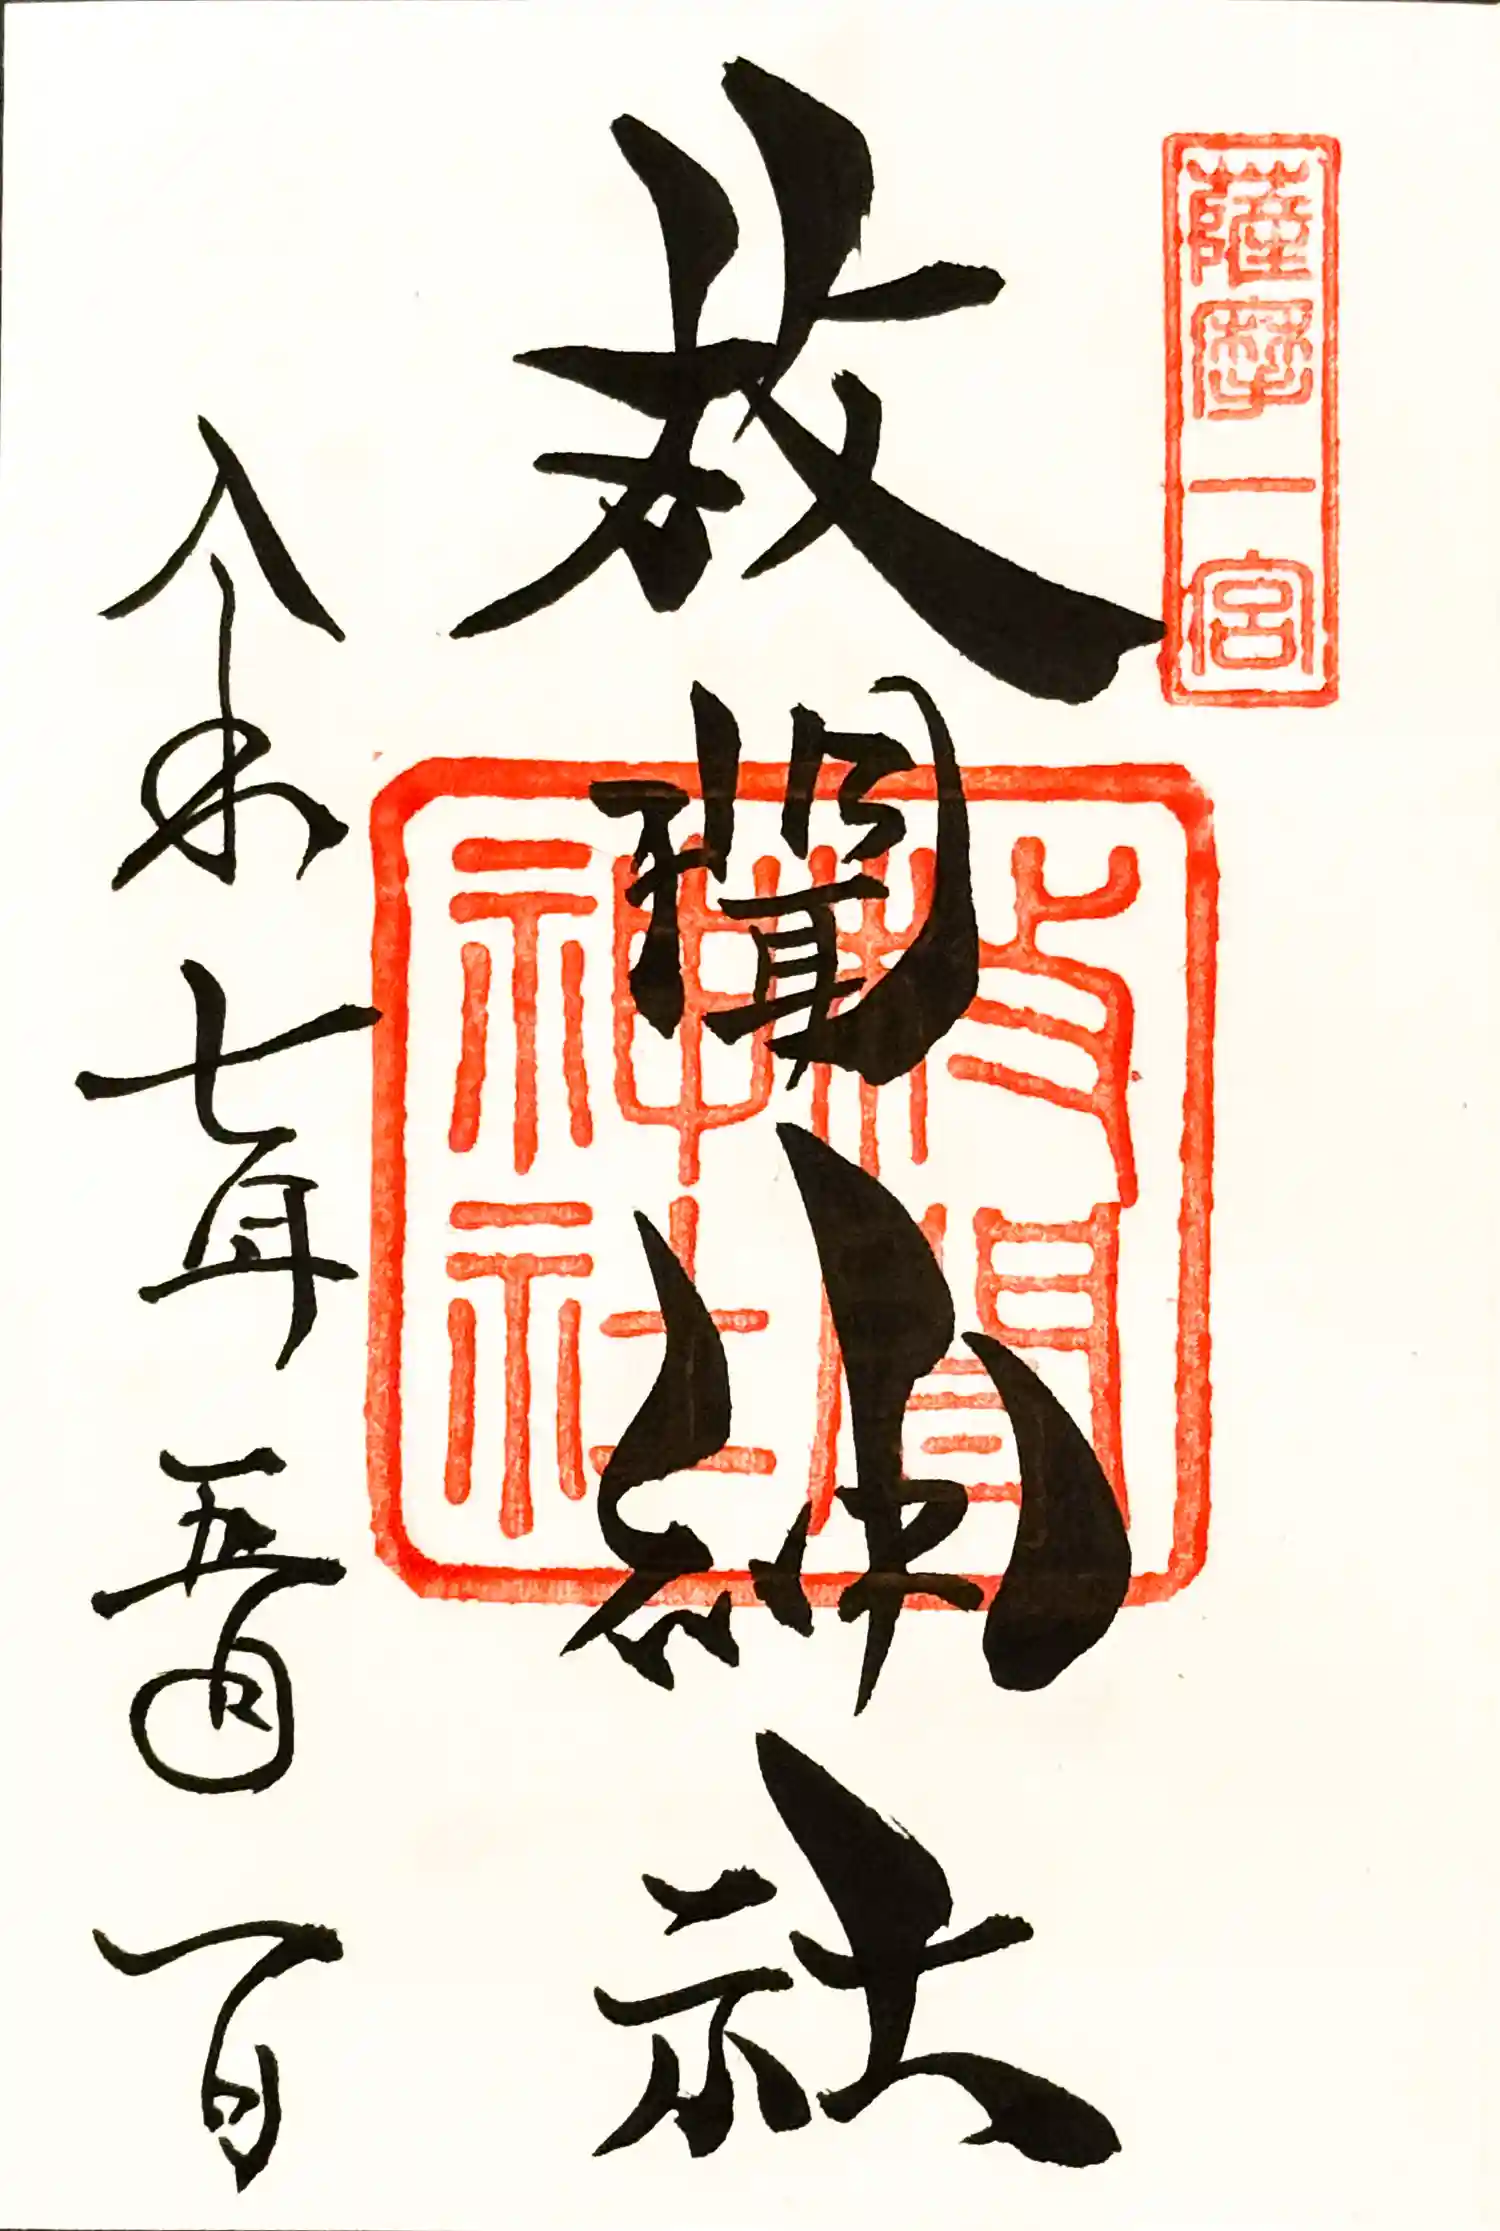 薩摩一宮
枚聞神社
枚聞神社
令和七年五月一日